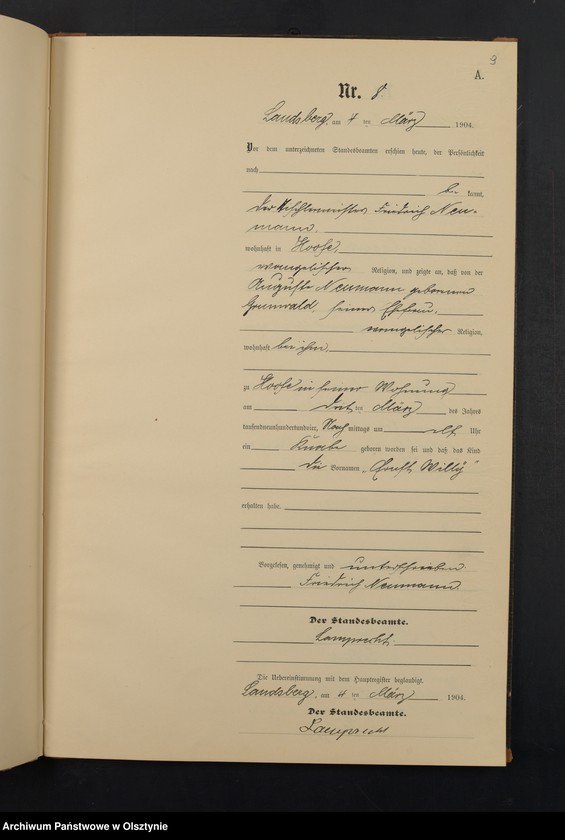 9
A.
Nr. 8
Landsberg, am 4 ten März 1904.
Vor dem unterzeichneten Standesbeamten erschien heute, der Persönlichkeit
nach
be kannt,
der Friedrich Neu-
mann,
wohnhaft in Hoofe,
evangelischer Religion, und zeigte an, daß von der
Auguste Neumann geborenen
Grunwald, seiner Ehefrau,
evangelischer Religion,
wohnhaft bei ihm,
zu Hoofe in seiner Wohnung
am drei ten März des Jahres
tausendneunhundertundvier, Nach mittags um elf Uhr
ein Knabe geboren worden sei und daß das Kind
die Vornamen „Ernst Willy“
erhalten habe.
Vorgelesen, genehmigt und unterschrieben
Friedrich Neumann.
Der Standesbeamte.
Lamprecht.
Die Uebereinstimmung mit dem Hauptregister beglaubigt.
Landsberg, am 4 ten März 1904.
Der Standesbeamte.
Lamprecht
Archiwum Państwowe w Olsztynie